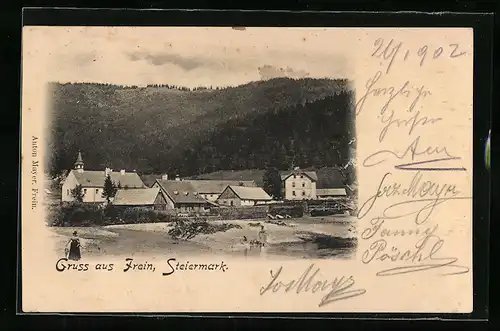 Anton Mayer, Frein.
Gruss aus Frein, Steiermark.
1902
Herzliche
Grüße
Jos Mayr
Fanny
Pöschl
Jos Mayr